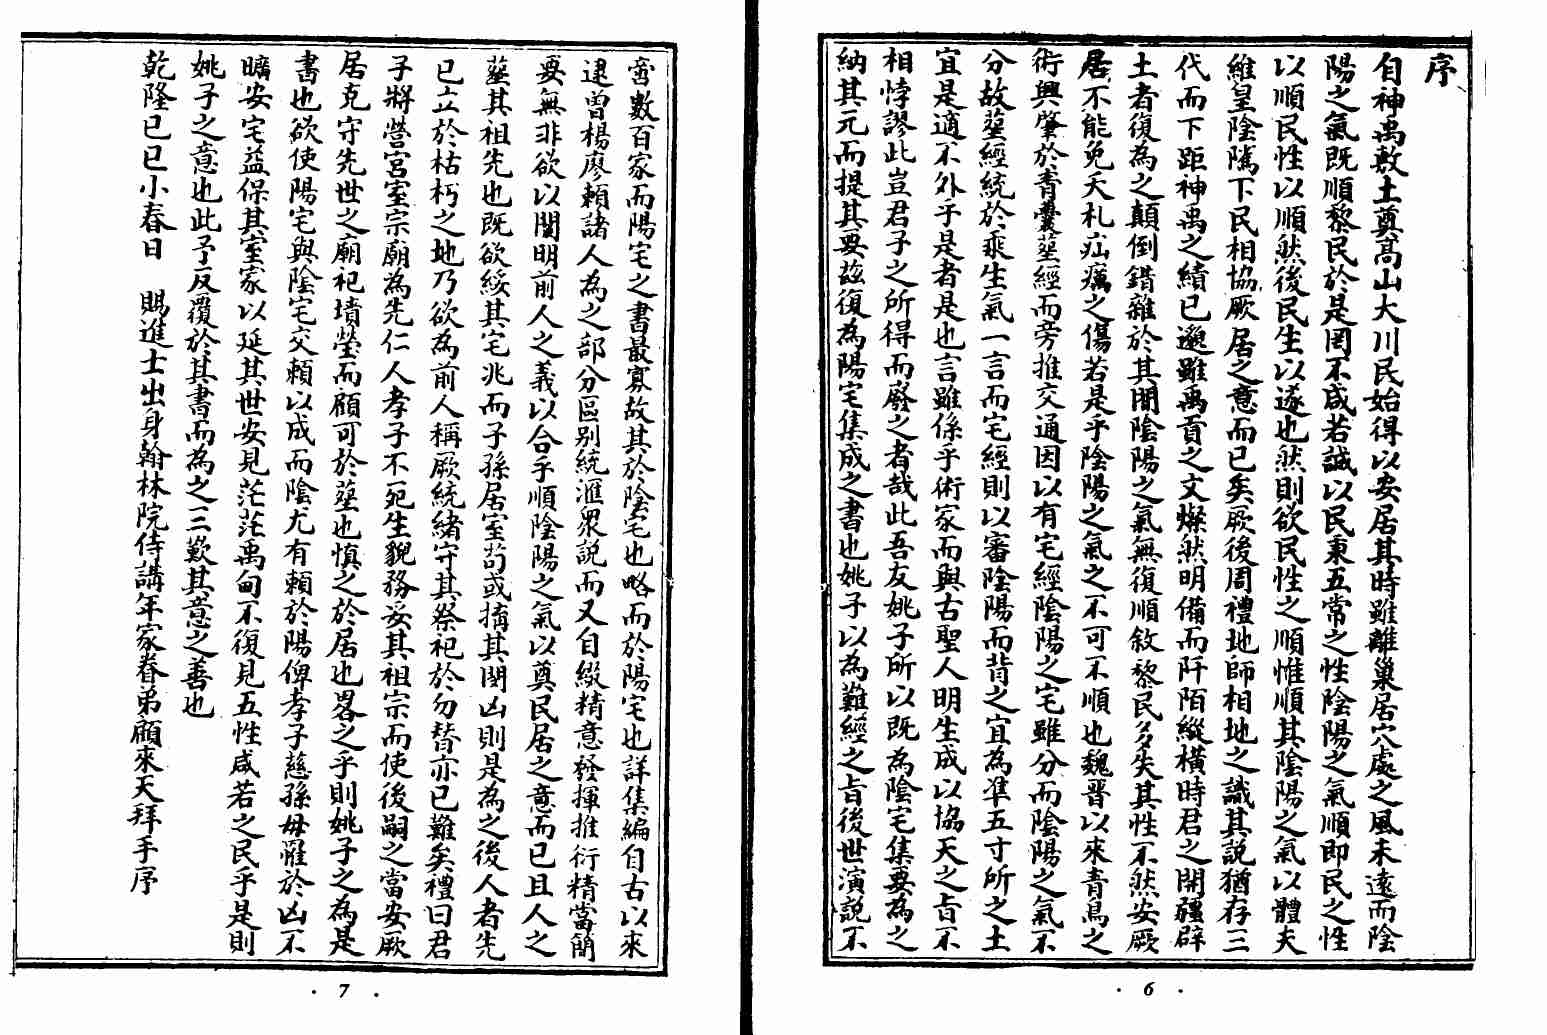 序
自神禹敷土奠高山大川民始得以安居其時雖離巢居穴處之風未遠而陰
陽之氣既順黎民於是罔不咸若誠以民秉五常之性陰陽之氣順即民之性
以順民性以順然後民生以遂也然則欲民性之順惟順其陰陽之氣以體夫
維皇陰隲下民相協厥居之意而已矣厥後周禮地師相地之識其說猶存三
代而下距神禹之績已邈雖禹貢之文燦然明備而阡陌縱橫時君之開疆辟
土者復為之顛倒錯雜於其間陰陽之氣無復順敘黎民多失其性不然安厥
居不能免夭札疝癘之傷若是乎陰陽之氣之不可不順也魏晋以來青烏之
術興肇於青囊塟經而旁推交通因以有宅經陰陽之宅雖分而陰陽之氣不
分故塟經統於乘生氣一言而宅經則以審陰陽而背之宜為準五寸所之土
宜是適不外乎是者是也言雖係乎術家而與古聖人明生成以協天之旨不
相悖謬此豈君子之所得而廢之者哉此吾友姚子所以既為陰宅集要為之
納其元而提其要茲復為陽宅集成之書也姚子以為難經之旨後世演說不
啻數百家而陽宅之書最寡故其於陰宅也略而於陽宅也詳集編自古以來
逮曾楊廖賴諸人為之部分區别統滙衆說而又自綴精意發揮推衍精當簡
要無非欲以闡明前人之義以合乎順陰陽之氣以奠民居之意而已且人之
塟其祖先也既欲綏其宅兆而子孫居室苟或搆其閉凶則是為之後人者先
已立於枯朽之地乃欲為前人稱厥統緒守其祭祀於勿替亦已難矣禮曰君
子將營宮室宗廟為先仁人孝子不死生貌務妥其祖宗而使後嗣之當安厥
居克守先世之廟祀墳塋而顧可於塟也慎之於居也畧之乎則姚子之為是
書也欲使陽宅與陰宅交賴以成而陰尤有賴於陽俾孝子慈孫毋罹於凶不
曠安宅益保其室家以延其世安見茫茫禹甸不復見五性咸若之民乎是則
姚子之意也此予反覆於其書而為之三歎其意之善也
乾隆已巳小春日 賜進士出身翰林院侍講年家眷弟顧來天拜手序
· 6 ·
· 7 ·